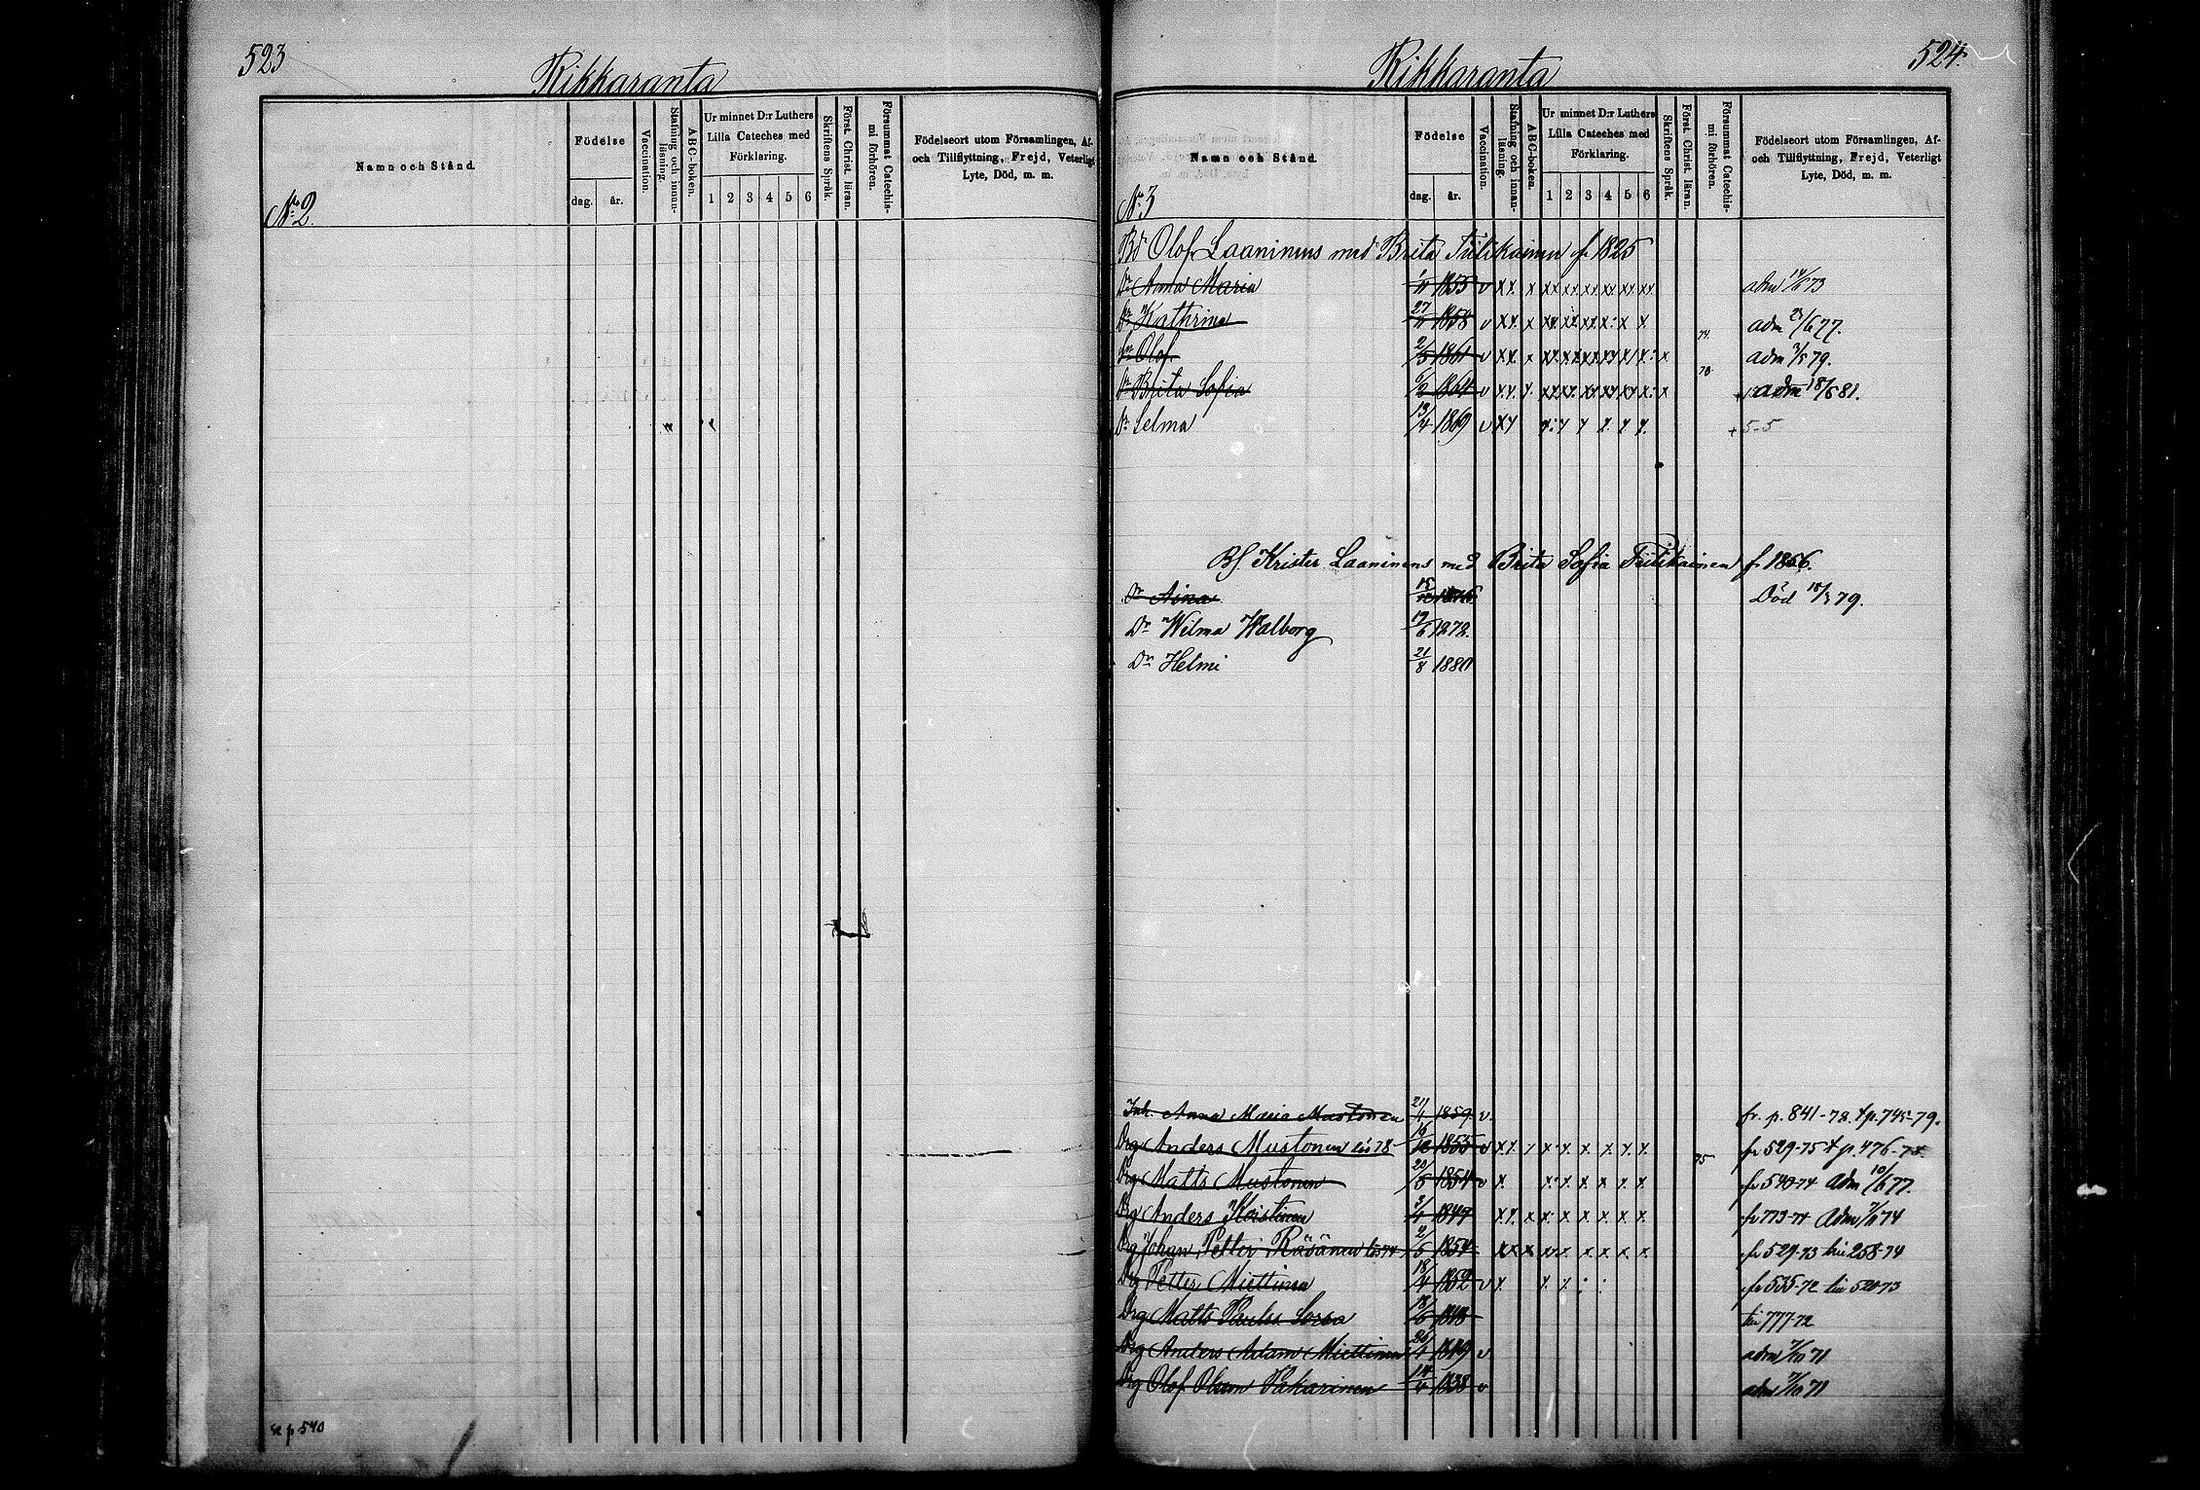 523
Rikkaranta
Namn och Stånd.
Födelse
dag. år.
Vaccination.
Stafning och innan-läsning.
ABC-boken.
Ur minnet D:r Luthers Lilla Cateches med Förklaring.
1 2 3 4 5 6
Skriftens Språk.
Först. Christ. läran.
Försummat Catechis-mi förhören.
Födelseort utom Församlingen, Af-
och Tillflyttning, Frejd, Veterligt
Lyte, Död, m. m.
N:o 2.
se p 540
Rikkaranta
524.
Namn och Stånd.
Födelse
dag. år.
Vaccination.
Stafning och innan-läsning.
ABC-boken.
Ur minnet D:r Luthers Lilla Cateches med Förklaring.
1 2 3 4 5 6
Skriftens Språk.
Först. Christ. läran.
Försummat Catechis-mi förhören.
Födelseort utom Församlingen, Af-
och Tillflyttning, Frejd, Veterligt
Lyte, Död, m. m.
N:o 3
Bd Olof Laaninens med Brita Tiilikainen f. 1825
Dr Anna Maria 1855 v adm 14/6 73
Dr Kathrina 27/11 1858 v adm 23/6 77.
Sn Olof 2/5 1861 v 74. adm 3/5 79.
Dr Brita Sofia 6/2 1864 v 78 adm 18/6 81.
Dr Selma 13/4 1869 v + 5-5
Bf Krister Laaninens med Brita Sofia Tiilikainen f. 1856.
Dr Aina 15 Död 18/3 79.
Dr Wilma Walborg 17/6 1878.
Dr Helmi 21/8 1880
Inh. Anna Maria Mustonen 21/11 1859 v. fr. p. 841-78. t p. 745-79.
Drg Anders Mustonen 16/12 1855 v 75 fr 529-75 t p. 476-78
Drg Matts Mustonen 20/5 1854 v fr 540-74 adm 10/6 77.
Drg Anders Koistinen 1849 fr 773-71 Adm 7/11 74
Drg Johan Petter Räsänen 2/5 1854 fr 529-73 till 258-74
Drg Petter Miettinen 18/4 1852 v fr 535-72 till 520-73
Drg Matts Paulus Sorsa 18/6 1848 till 777-72
Drg Anders Adam Miettinen 26/4 1849 v adm 7/10 71
Drg Olof Olsson Pakarinen 14/4 1838 v adm 7/10 71